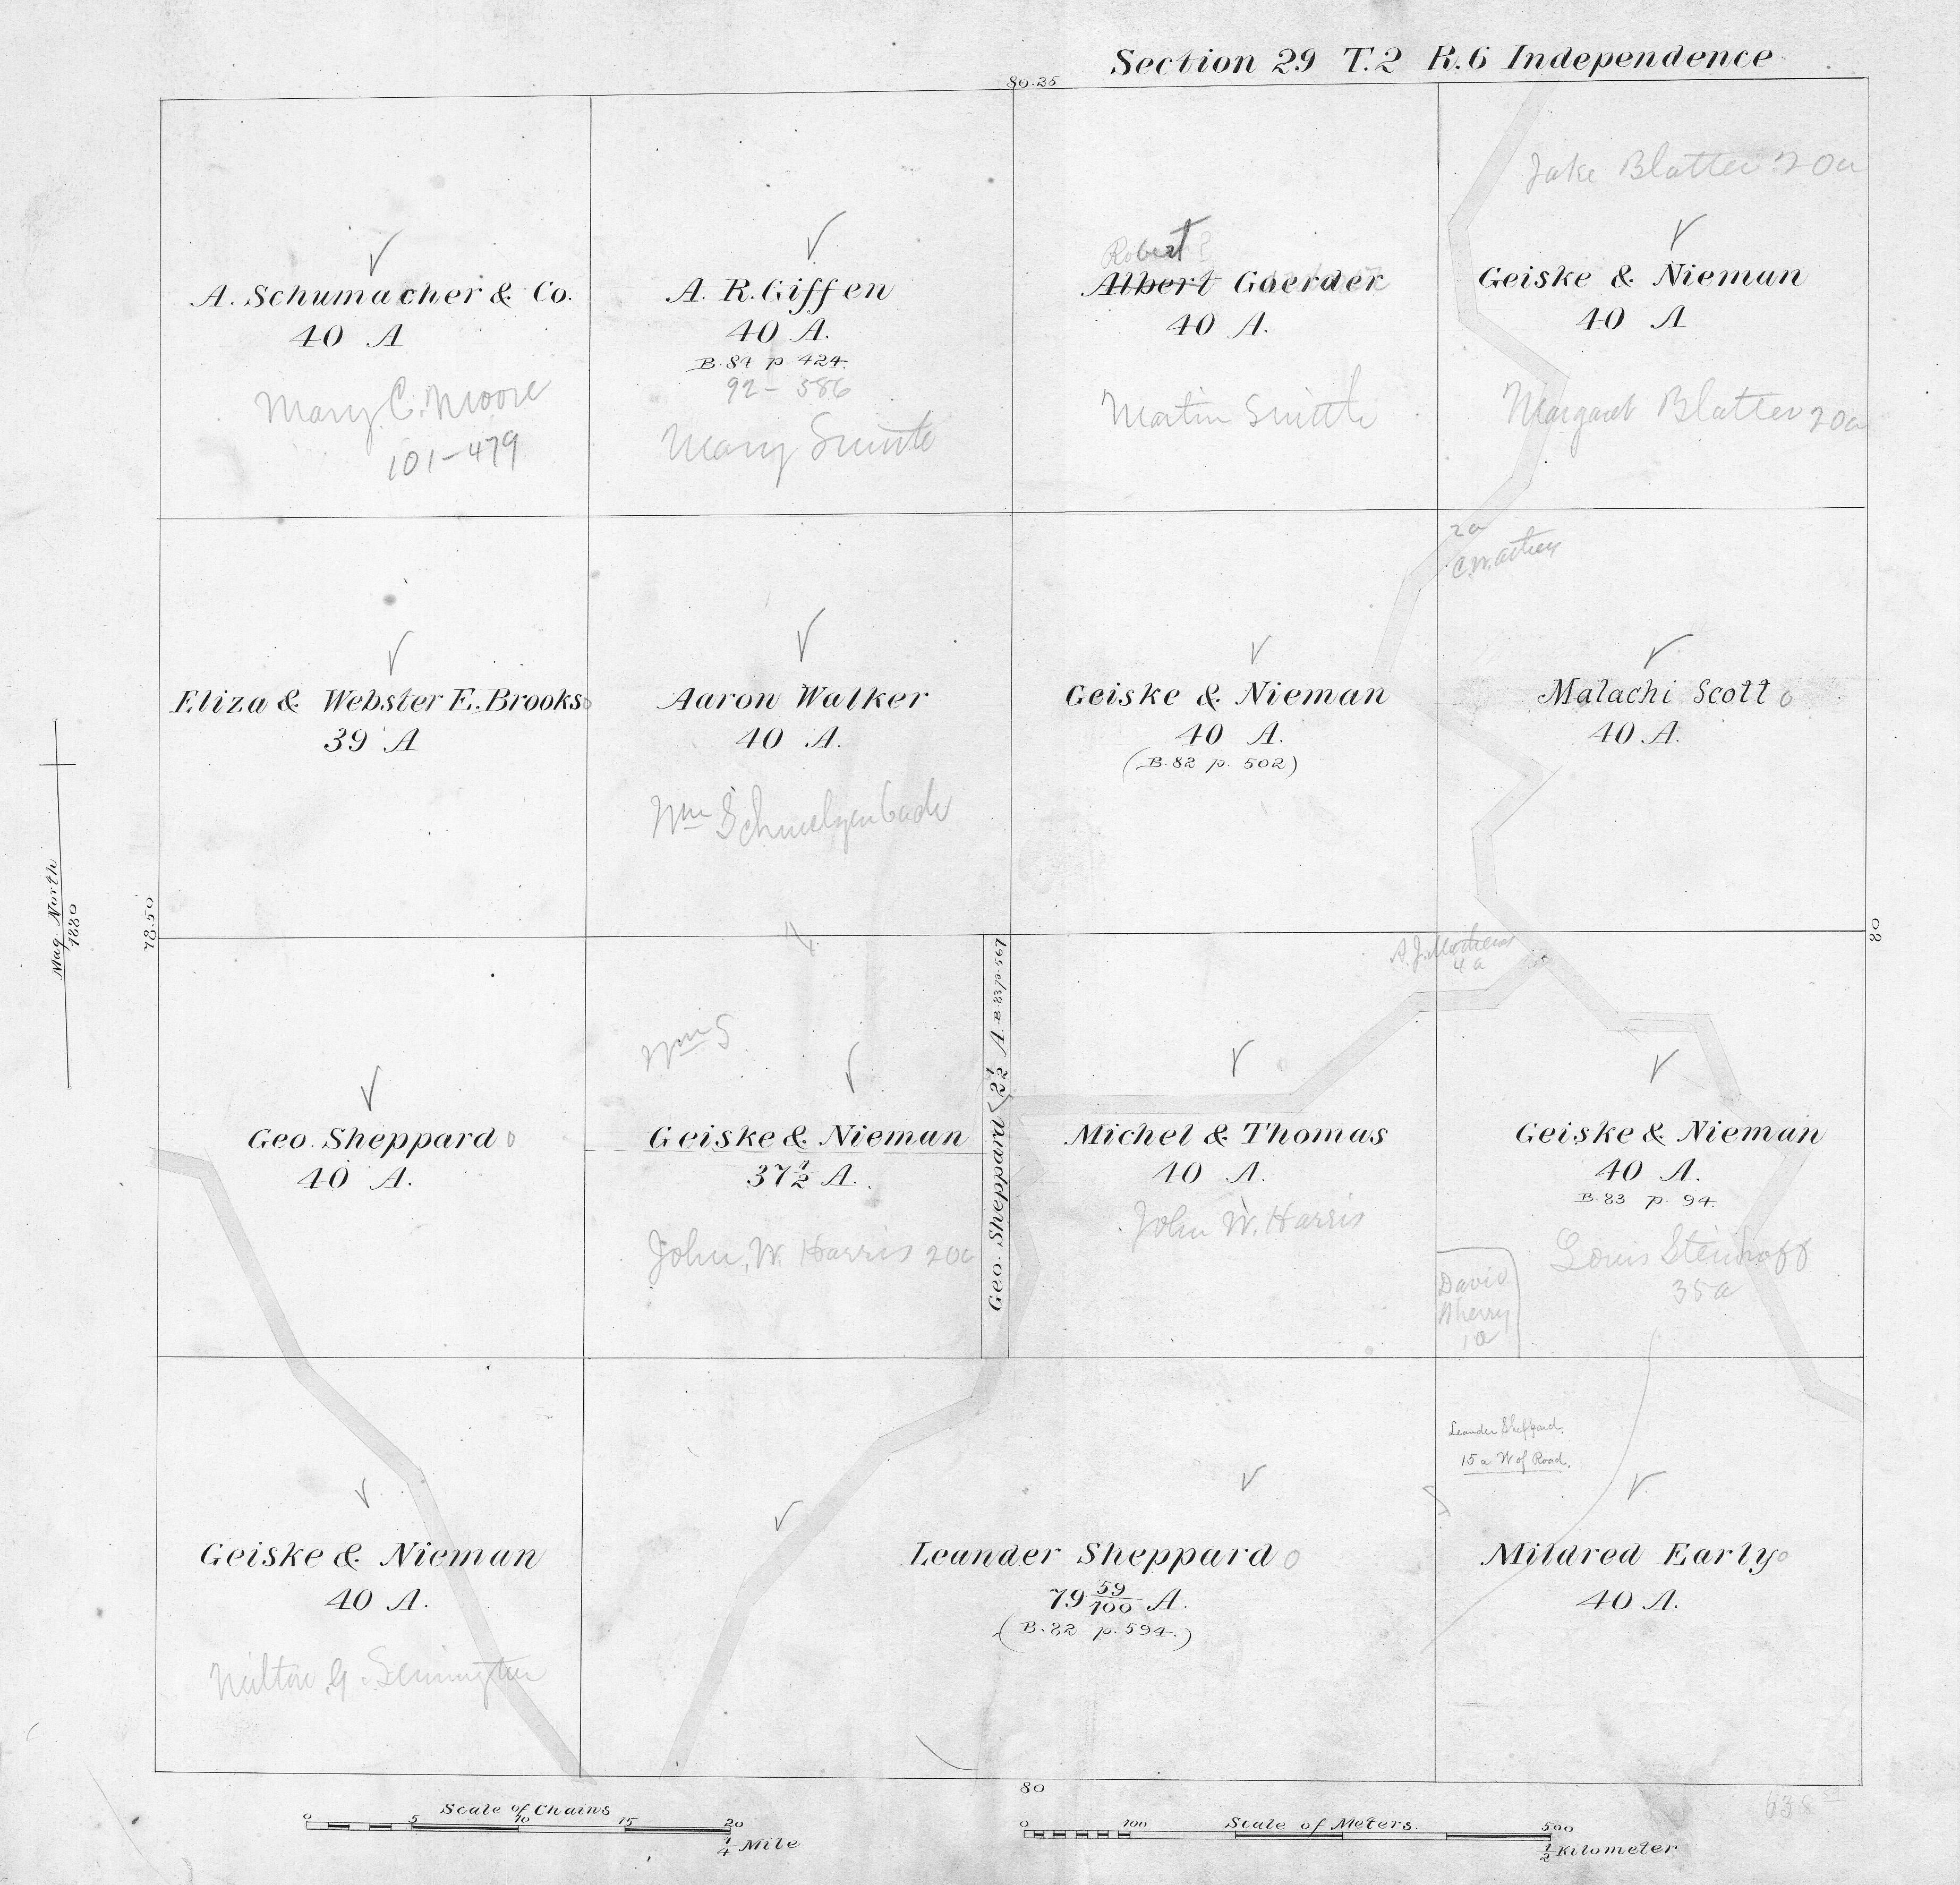 Section 29 T.2 R.6 Independence
80.25
Jake Blatter 20a
A. Schumacher & Co.
40 A
Mary C. Moore
101-479
A. R. Giffen
40 A.
B. 84 p. 424.
92-586
Mary
Robert
Albert Goerder
40 A.
Martin
Geiske & Nieman
40 A
Margaret Blatter 20a
2a
Eliza & Webster E. Brooks
39 A
Aaron Walker
40 A.
Wm Schmelzenbach
Geiske & Nieman
40 A.
(B. 82 p. 502)
Malachi Scott
40 A.
Mag. North
1880
78.50
80
4a
Geo. Sheppard
40 A.
Wm S
Geiske & Nieman
37 1/2 A.
John W. Harris 20a
Geo. Sheppard 2 1/2 A. B. 83 p. 567
Michel & Thomas
40 A.
John W. Harris
Geiske & Nieman
40 A.
B. 83 p. 94.
Louis Steinhoff
35 a
David
1a
Leander Sheppard.
15 a W of Road.
Geiske & Nieman
40 A.
Milton G.
Leander Sheppard
79 59/100 A.
(B. 82 p. 594.)
Mildred Early
40 A.
80
Scale of Chains
0 5 10 15 20
1/4 Mile
Scale of Meters.
0 100 500
1/2 Kilometer
638